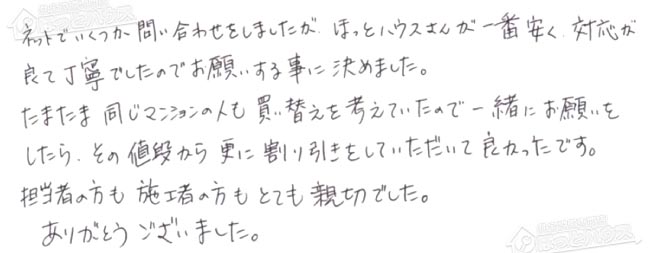 ネットでいくつか問い合わせをしましたが、ほっとハウスさんが一番安く、対応が
良て丁寧でしたのでお願いする事に決めました。
たまたま同じマンションの人も買い替えを考えていたので一緒にお願いを
したら、その値段から更に割り引きをしていただいて良かったです。
担当者の方も施工者の方もとても親切でした。
ありがとうございました。
ほっとハウス